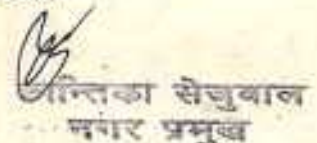 शान्तिका सेजुवाल
नगर प्रमुख